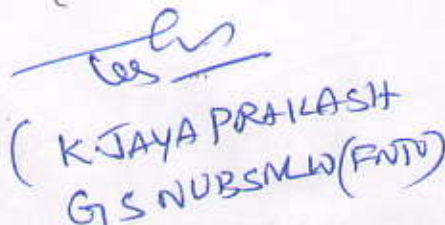 ( K. JAYA PRAKASH
G S NUBSNLW (FNTO)